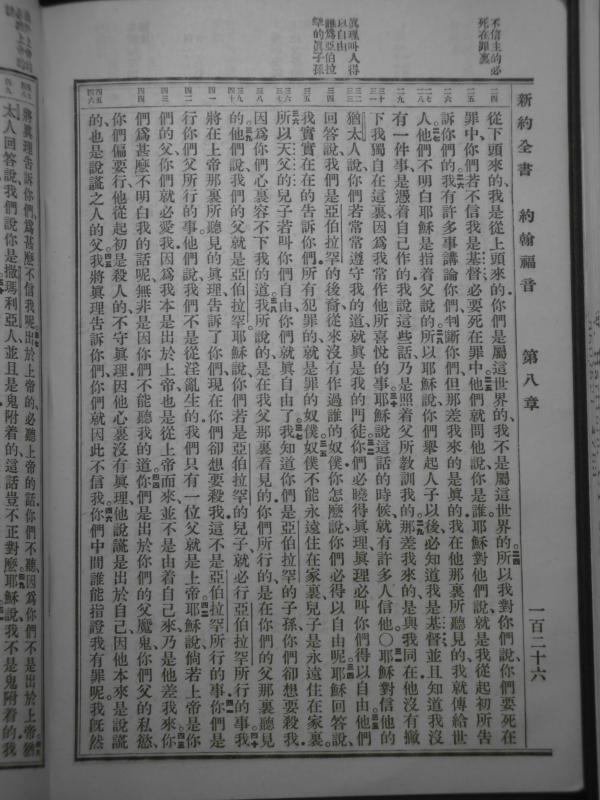 新約全書　約翰福音　第八章　一百二十六
不信主的必
死在罪裏
眞理叫人得
以自由
誰爲亞伯拉
罕的眞子孫
從下頭來的、我是從上頭來的、你們是屬這世界的、我不是屬這世界的。所以我對你們說、你們要死在
罪中、你們若不信我是基督、必要死在罪中。他們就問他說、你是誰。耶穌對他們說、就是我從起初所告
訴你們的。我有許多事講論你們、判斷你們、但那差我來的是眞的、我在他那裏所聽見的、我就傳給世
人。他們不明白耶穌是指着父說的。所以耶穌說、你們舉起人子以後、必知道我是基督、並且知道我沒
有一件事、是憑着自己作的、我說這些話、乃是照着父所教訓我的。那差我來的、是與我同在、他沒有撇
下我獨自在這裏、因爲我常作他所喜悅的事。耶穌說這話的時候、就有許多人信他。〇耶穌對信他的
猶太人說、你們若常常遵守我的道、就眞是我的門徒。你們必曉得眞理、眞理必叫你們得以自由。他們
回答說、我們是亞伯拉罕的後裔、從來沒有作過誰的奴僕、你怎麽說、你們必得以自由呢。耶穌回答說、
我實實在在的告訴你們、所有犯罪的、就是罪的奴僕。奴僕不能永遠住在家裏、兒子是永遠住在家裏。
所以天父的兒子若叫你們自由、你們就眞自由了。我知道你們是亞伯拉罕的子孫、你們卻想要殺我、
因爲你們心裏容不下我的道。我所說的、是在我父那裏看見的、你們所行的、是在你們的父那裏聽見
的。他們說、我們的父就是亞伯拉罕。耶穌說、你們若是亞伯拉罕的兒子、就必行亞伯拉罕所行的事。我
將在上帝那裏所聽見的眞理、告訴了你們、現在你們卻想要殺我、這不是亞伯拉罕所行的事。你們是
行你們父所行的事。他們說、我們不是從淫亂生的、我們只有一位父、就是上帝。耶穌說、倘若上帝是你
們的父、你們就必愛我、因爲我本是出於上帝、也是從上帝而來、並不是由着自己來、乃是他差我來。你
們爲甚麽不明白我的話呢、無非是因你們不能聽我的道。你們是出於你們的父魔鬼、你們父的私慾、
你們偏要行、他從起初是殺人的、不守眞理、因他心裏沒有眞理、他說謊是出於自己、因他本來是說謊
的、也是說謊之人的父。我將眞理告訴你們、你們就因此不信我。你們中間誰能指證我有罪呢、我旣然
將眞理告訴你們、爲甚麽不信我呢。出於上帝的、必聽上帝的話、你們不聽、因爲你們不是出於上帝。猶
太人回答說、我們說你是撒瑪利亞人、並且是鬼附着的、這話豈不正對麽。耶穌說、我不是鬼附着的、我